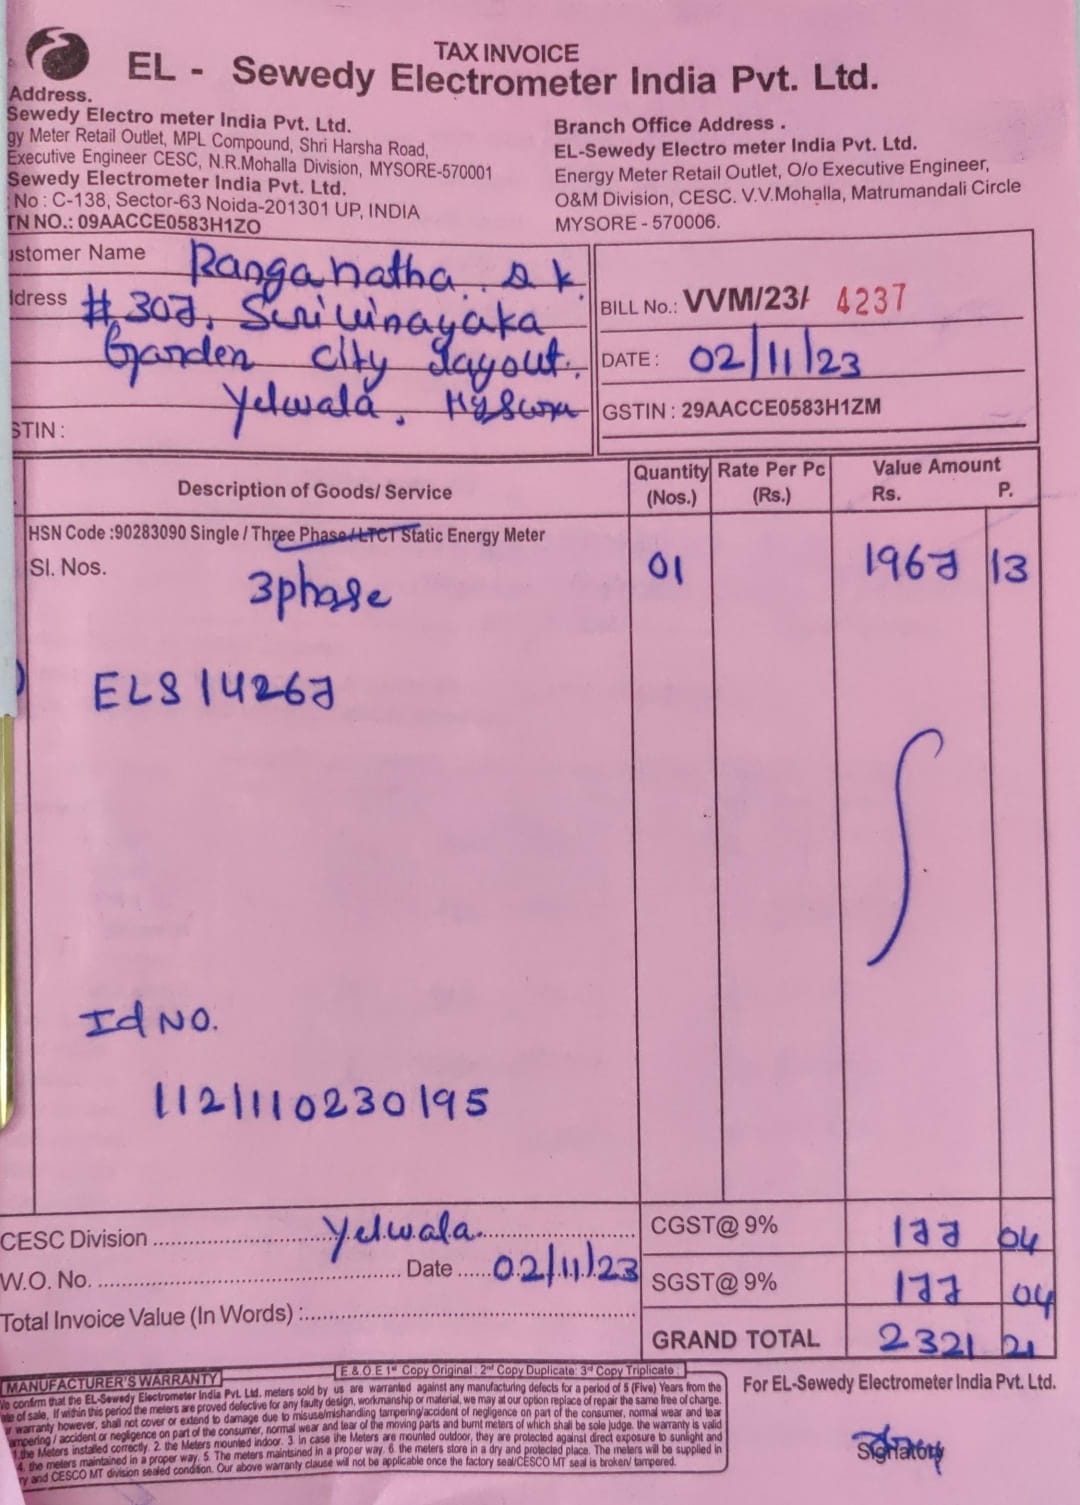 TAX INVOICE
EL - Sewedy Electrometer India Pvt. Ltd.
Address.
Sewedy Electro meter India Pvt. Ltd.
gy Meter Retail Outlet, MPL Compound, Shri Harsha Road,
Executive Engineer CESC, N.R.Mohalla Division, MYSORE-570001
Sewedy Electrometer India Pvt. Ltd.
No : C-138, Sector-63 Noida-201301 UP, INDIA
TN NO.: 09AACCE0583H1ZO
Branch Office Address .
EL-Sewedy Electro meter India Pvt. Ltd.
Energy Meter Retail Outlet, O/o Executive Engineer,
O&M Division, CESC. V.V.Mohalla, Matrumandali Circle
MYSORE - 570006.
ustomer Name Ranganatha. S. K.
ddress #307, Sirivinayaka
Garden city Layout.
Yelwala, Mysuru
STIN :
BILL No.: VVM/23/ 4237
DATE : 02/11/23
GSTIN : 29AACCE0583H1ZM
Description of Goods/ Service Quantity (Nos.) Rate Per Pc (Rs.) Value Amount Rs. P.
HSN Code :90283090 Single / Three Phase / LTCT Static Energy Meter
Sl. Nos. 01 1967 13
3phase
ELS14267
Id NO.
1121110230195
CESC Division Yelwala CGST@ 9% 177 04
W.O. No. Date 02/11/23 SGST@ 9% 177 04
Total Invoice Value (In Words) : GRAND TOTAL 2321 21
E & O E 1st Copy Original : 2nd Copy Duplicate: 3rd Copy Triplicate :
MANUFACTURER'S WARRANTY
We confirm that the EL-Sewedy Electrometer India Pvt. Ltd. meters sold by us are warranted against any manufacturing defects for a period of 5 (Five) Years from the
ate of sale, If within this period the meters are proved defective for any faulty design, workmanship or material, we may at our option replace of repair the same free of charge.
r warranty however, shall not cover or extend to damage due to misuse/mishandling tampering/accident of negligence on part of the consumer, normal wear and tear
ampering / accident or negligence on part of the consumer, normal wear and tear of the moving parts and burnt meters of which shall be sole judge. the warranty is valid
1.the Meters installed correctly. 2. the Meters mounted indoor. 3. in case the Meters are mounted outdoor, they are protected against direct exposure to sunlight and
4. the meters maintained in a proper way. 5. The meters maintsined in a proper way. 6. the meters store in a dry and protected place. The meters will be supplied in
ry and CESCO MT division sealed condition. Our above warranty clause will not be applicable once the factory seal/CESCO MT seal is broken/ tampered.
For EL-Sewedy Electrometer India Pvt. Ltd.
Signatory